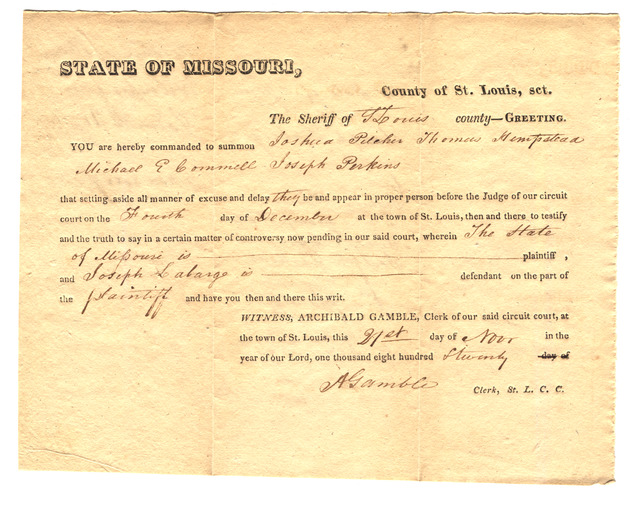 STATE OF MISSOURI,
County of St. Louis, sct.
The Sheriff of St Louis county—GREETING.
YOU are hereby commanded to summon Joshua Pilcher Thomas Hempstead
Michael E Commell Joseph Perkins
that setting aside all manner of excuse and delay they be and appear in proper person before the Judge of our circuit
court on the Fourth day of December at the town of St. Louis, then and there to testify
and the truth to say in a certain matter of controversy now pending in our said court, wherein The State
of Missouri is plaintiff ,
and Joseph Labarge is defendant on the part of
the plaintiff and have you then and there this writ.
WITNESS, ARCHIBALD GAMBLE, Clerk of our said circuit court, at
the town of St. Louis, this 21st day of Novr in the
year of our Lord, one thousand eight hundred & twenty day of
AGamble Clerk, St. L. C. C.